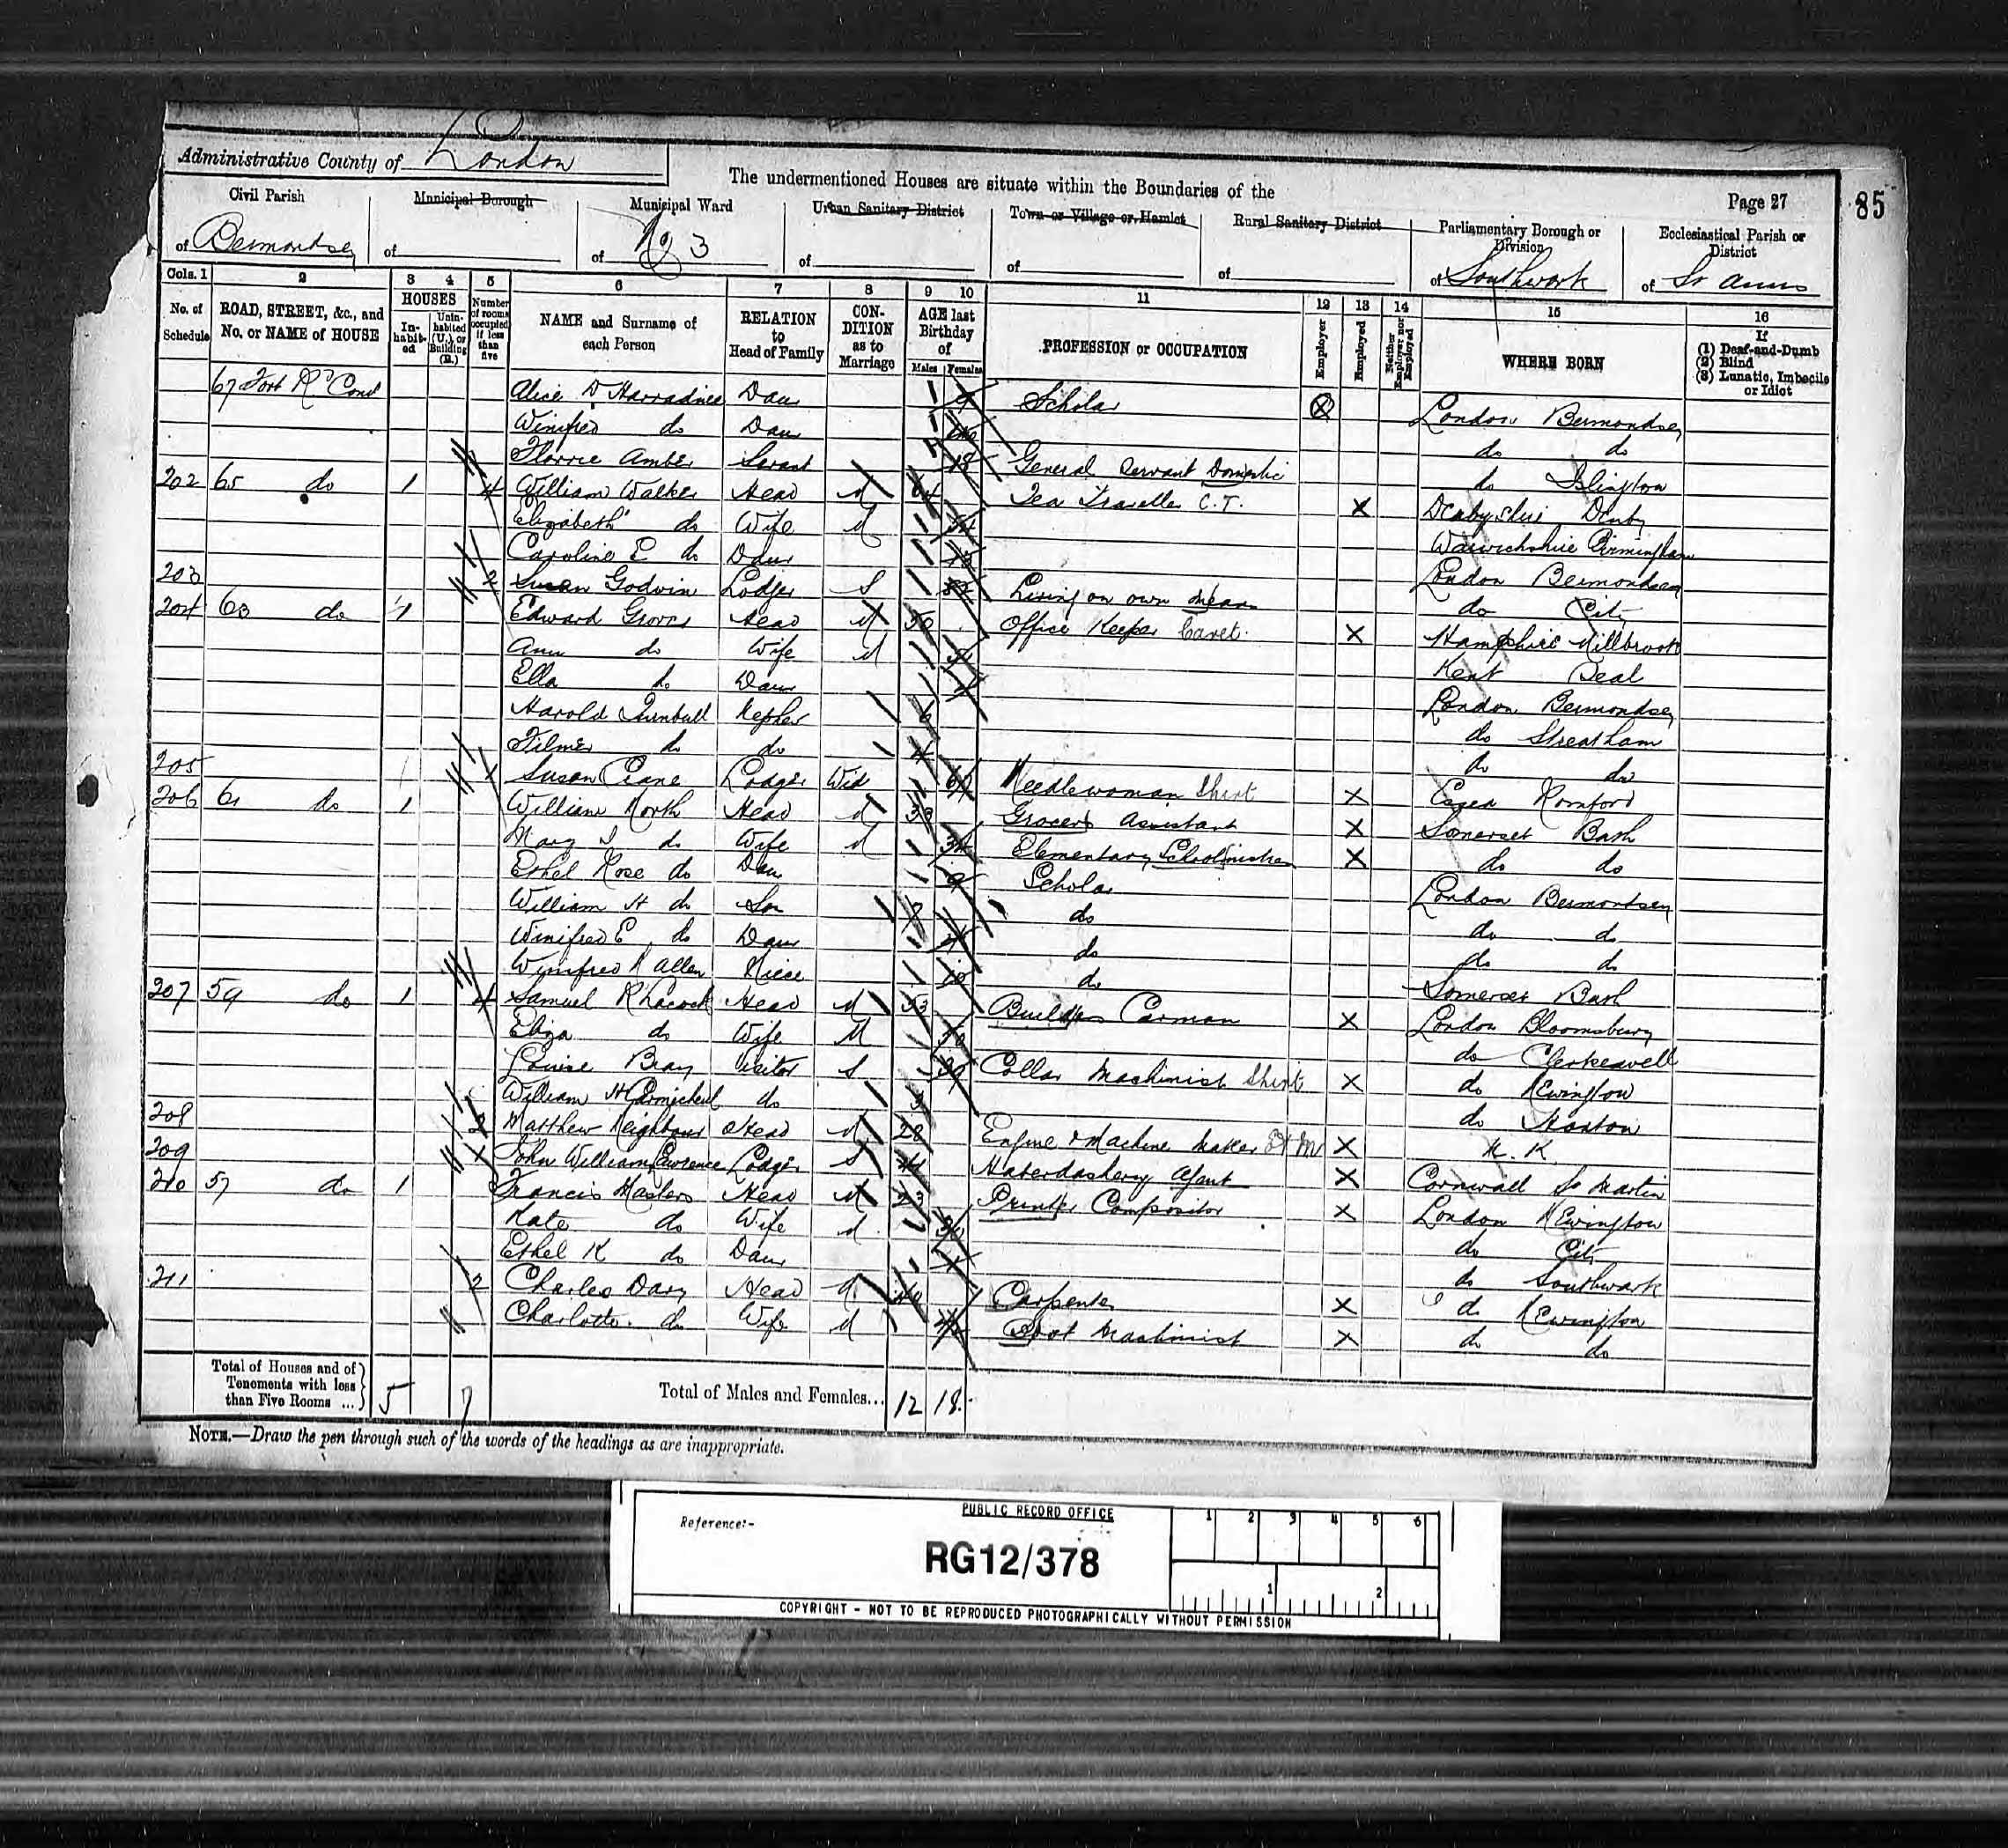 Administrative County of London
The undermentioned Houses are situate within the Boundaries of the
Page 27
85
Civil Parish of Bermondsey
Municipal Borough of
Municipal Ward of No 3
Urban Sanitary District of
Town or Village or Hamlet of
Rural Sanitary District of
Parliamentary Borough or Division of Southwark
Ecclesiastical Parish or District of St Anns
Cols. 1 2 3 4 5 6 7 8 9 10 11 12 13 14 15 16
No. of Schedule
ROAD, STREET, &c., and No. or NAME of HOUSE
HOUSES
Inhabited
Uninhabited (U.), or Building (B.)
Number of rooms occupied if less than five
NAME and Surname of each Person
RELATION to Head of Family
CONDITION as to Marriage
AGE last Birthday of
Males Females
PROFESSION or OCCUPATION
Employer
Employed
Neither Employer nor Employed
WHERE BORN
If (1) Deaf-and-Dumb (2) Blind (3) Lunatic, Imbecile or Idiot
67 Fort Rd Cond Alice D Harradnee Daur Scholar X London Bermondsey
Winifred do Daur do do
Florrie Amber Servant 18 General Servant Domestic do Islington
202 65 do 1 4 William Walker Head M 64 Tea Traveller C.T. X Derbyshire Derby
Elizabeth do Wife M Warwickshire Birmingham
Caroline E do Daur London Bermondsey
203 2 Susan Godwin Lodger S Living on own means do City
204 63 do 1 Edward Grover Head M 50 Office Keeper Caret. X Hampshire Millbrook
Ann do Wife M Kent Deal
Ella do Daur London Bermondsey
Harold Turnbull Nephew 6 do Streatham
Filmer do do 4 do do
205 1 Susan Crane Lodger Wid Needlewoman Shirt X Essex Romford
206 61 do 1 William North Head M 38 Grocers Assistant X Somerset Bath
Mary J do Wife M Elementary Schoolmistress X do do
Ethel Rose do Daur 9 Scholar London Bermondsey
William H do Son do do do
Winifred E do Daur do do do
Winifred R Allen Niece 10 do Somerset Bath
207 59 do 1 4 Samuel R Lacock Head M 53 Builders Carman X London Bloomsbury
Eliza do Wife M do Clerkenwell
Louise Bray Visitor S Collar Machinist Shirt X do Newington
William H Carmichael do 3 do Hoxton
208 2 Matthew Neighbour Head M 28 Engine & Machine Maker X N. K.
209 1 John William Lawrence Lodger S Haberdashery Agent X Cornwall St Martin
210 57 do 1 Francis Masters Head M 23 Printer Compositor X London Newington
Kate do Wife M do City
Ethel K do Daur do Southwark
211 2 Charles Dary Head M Carpenter X do Newington
Charlotte do Wife M Boot Machinist X do do
Total of Houses and of Tenements with less than Five Rooms ... 5 7
Total of Males and Females... 12 18
NOTE.—Draw the pen through such of the words of the headings as are inappropriate.
PUBLIC RECORD OFFICE
Reference:-
RG12/378
1 2 3 4 5 6
1 2
COPYRIGHT - NOT TO BE REPRODUCED PHOTOGRAPHICALLY WITHOUT PERMISSION